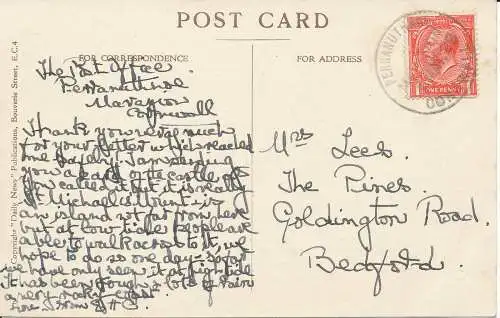 POST CARD
FOR CORRESPONDENCE
The Post Office
Perranuthnoe
Marazion
Cornwall
Thank you very much
for your letter which reached
me safely. I am sending
you a card of the castle as
you called it but it is really
St Michael's Mount - is
an island not far from here
but at low tides people are
able to walk across to it, we
hope to do so one day - so far
we have only seen it at high tide
It has been rough & lots of rain
a very rocky coast.
Love from
FOR ADDRESS
Mrs Lees.
The Pines.
Goldington Road.
Bedford.
PERRANUTH
OC
ONE PENNY
Copyright "Daily News" Publications, Bouverie Street, E.C.4